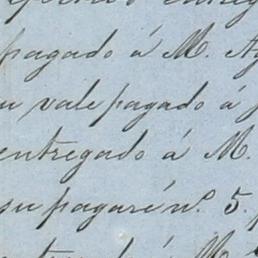 pagado á M. Ag
su vale pagado á
entregado á M.
su pagaré nº. 5.